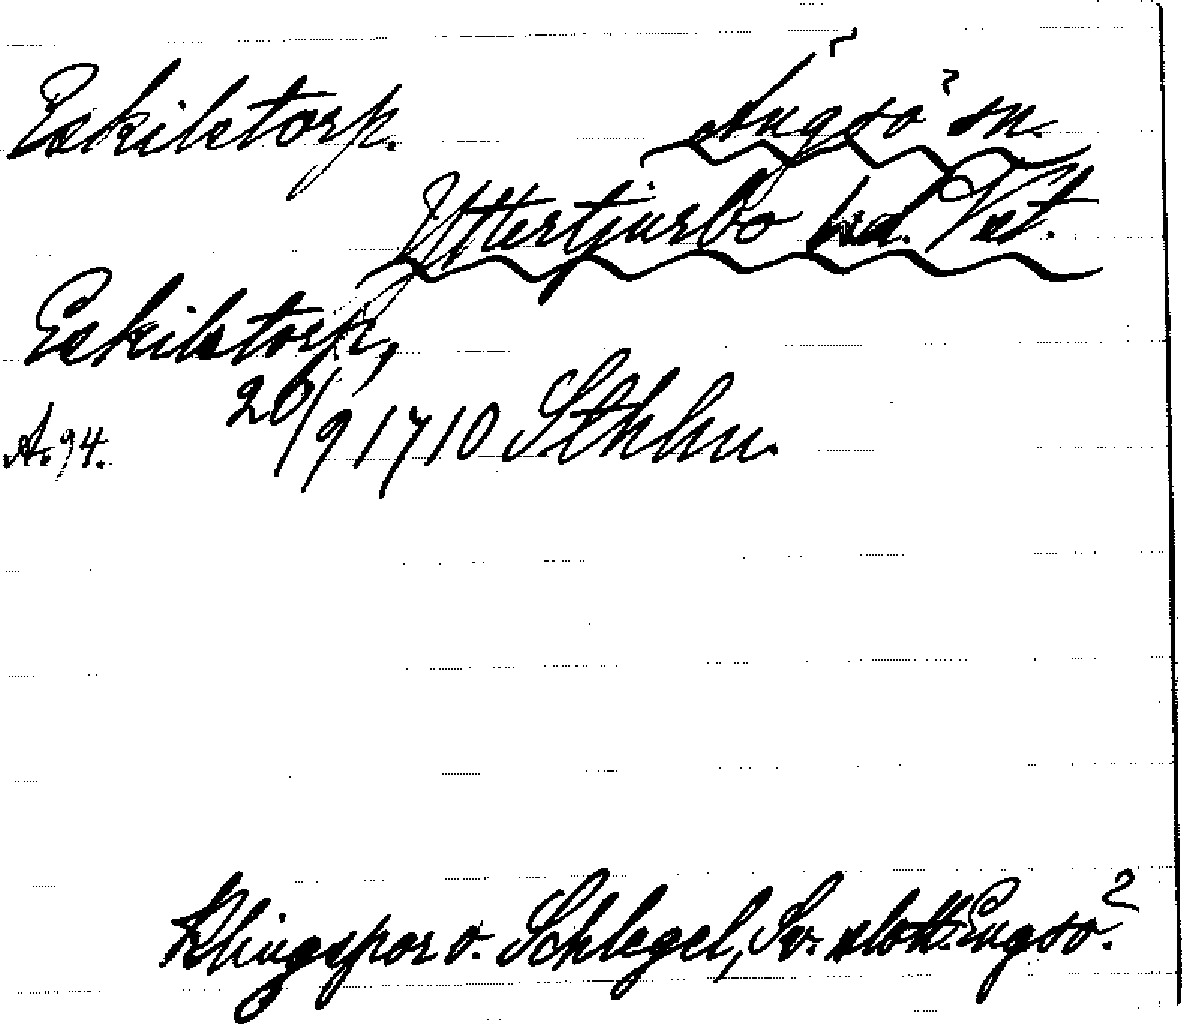 Eskilstorp. Ängsö sn.
Yttertjurbo hd. Vst.
Eskilstorp,
A. 94. 26/9 1710 Sthlm.
Klingspor o. Schlegel, Sv. slott. Engsö.